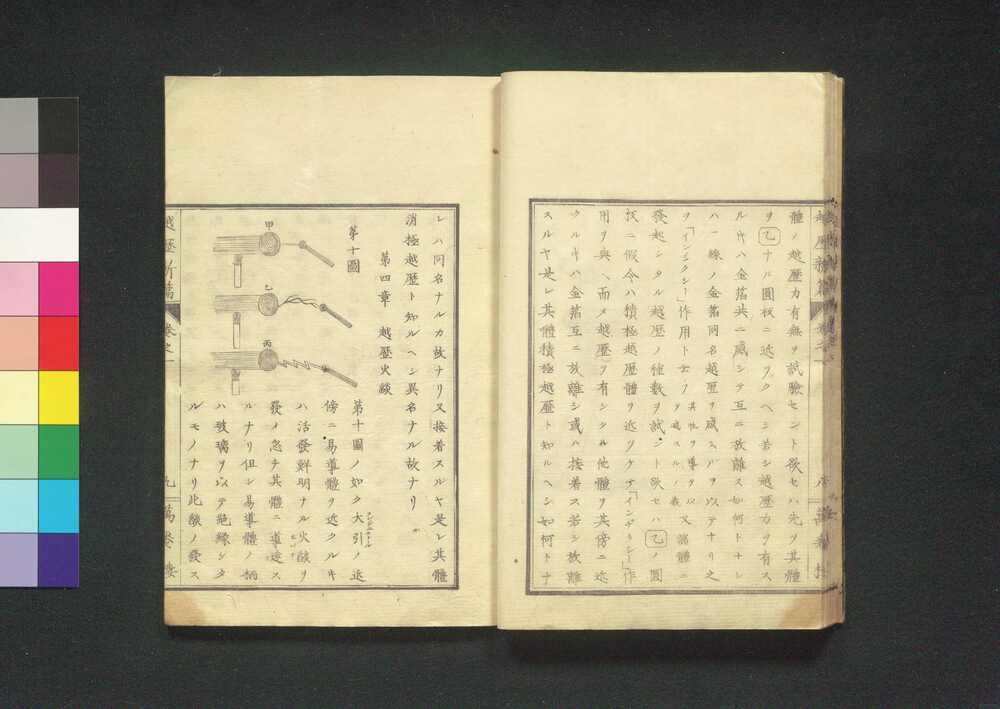 體ノ越歷力有無ヲ試驗セント欲セハ先ヲ其體
ヲ乙ナル圓板ニ近ツクヘシ若シ越歷力ヲ有ス
ルキハ金箔共ニ感シテ互ニ放離ス如何トナレ
ハ一線ノ金箔同名越歷ヲ感スルヲ以テナリ之
ヲ「インニクシー」作用ト云フ
又諸體ニ
發起シタル越歷ノ種數ヲ試ント欲セハ乙ノ圓
板ニ假令ハ積極越歷體ヲ近ツケ「インヂクシー」作
用ヲ與ヘ而メ越歷ヲ有シタル他體ヲ其傍ニ近
クルキハ金箔互ニ放離シ或ハ接着ス若シ放離
スルヤ是レ其體積極越歷ト知ルヘシ如何トナ
レハ同名ナルカ故ナリ又接着スルヤ是レ其體
消極越歷ト知ルヘシ異名ナル故ナリ
第四章 越歷火燄
第十圖
甲
乙
丙
第十圖ノ如ク大引ノ近
傍ニ易導體ヲ近クルキ
ハ活發鮮明ナル火燄ヲ
發メ忽チ其體ニ導達ス
ルナリ但シ易導體ノ柄
ハ玻璃ヲ以テ絕緣シタ
ルモノナリ此燄ノ發ス
越歷新篇
卷之一
九